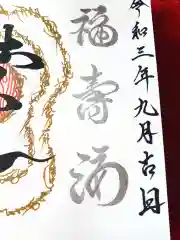 令和三年九月吉日
福寿海